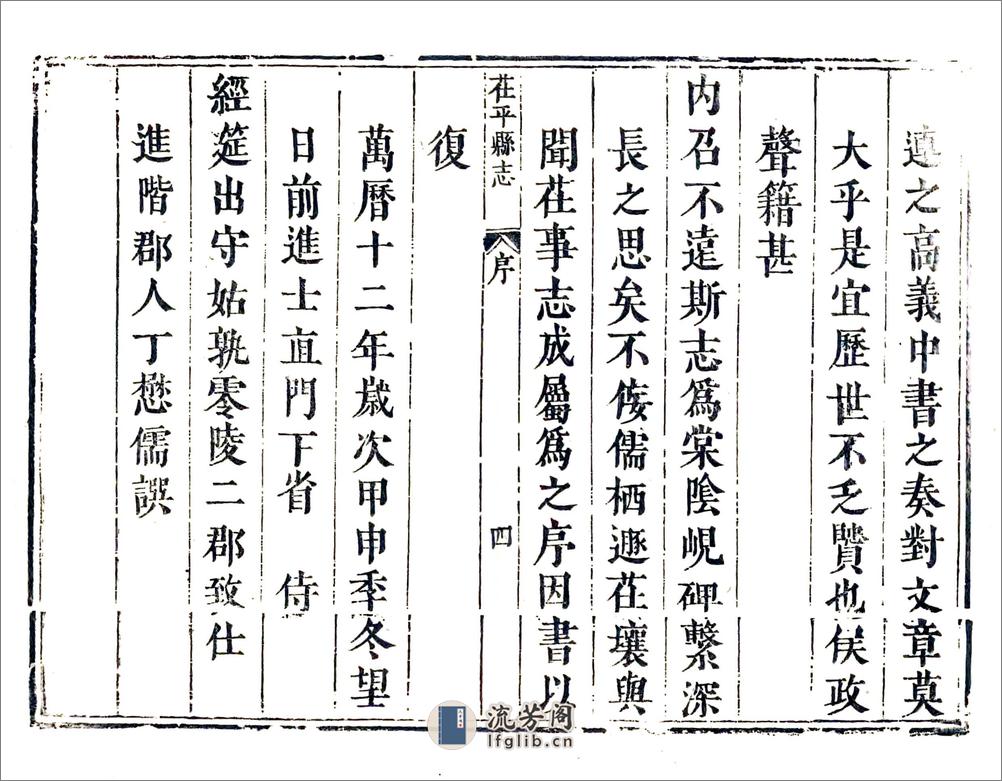 連之高義中書之奏對文章莫
大乎是宜歷世不乏賢也侯政
聲籍甚
內召不遠斯志為棠陰峴碑繫深
長之思矣不佞儒栖遯茌壤與
聞茌事志成屬為之序因書以
茌平縣志 序 四
復
萬曆十二年歲次甲申季冬望
日前進士直門下省 侍
經筵出守姑孰零陵二郡致仕
進階郡人丁懋儒譔
流芳阁
lfglib.cn